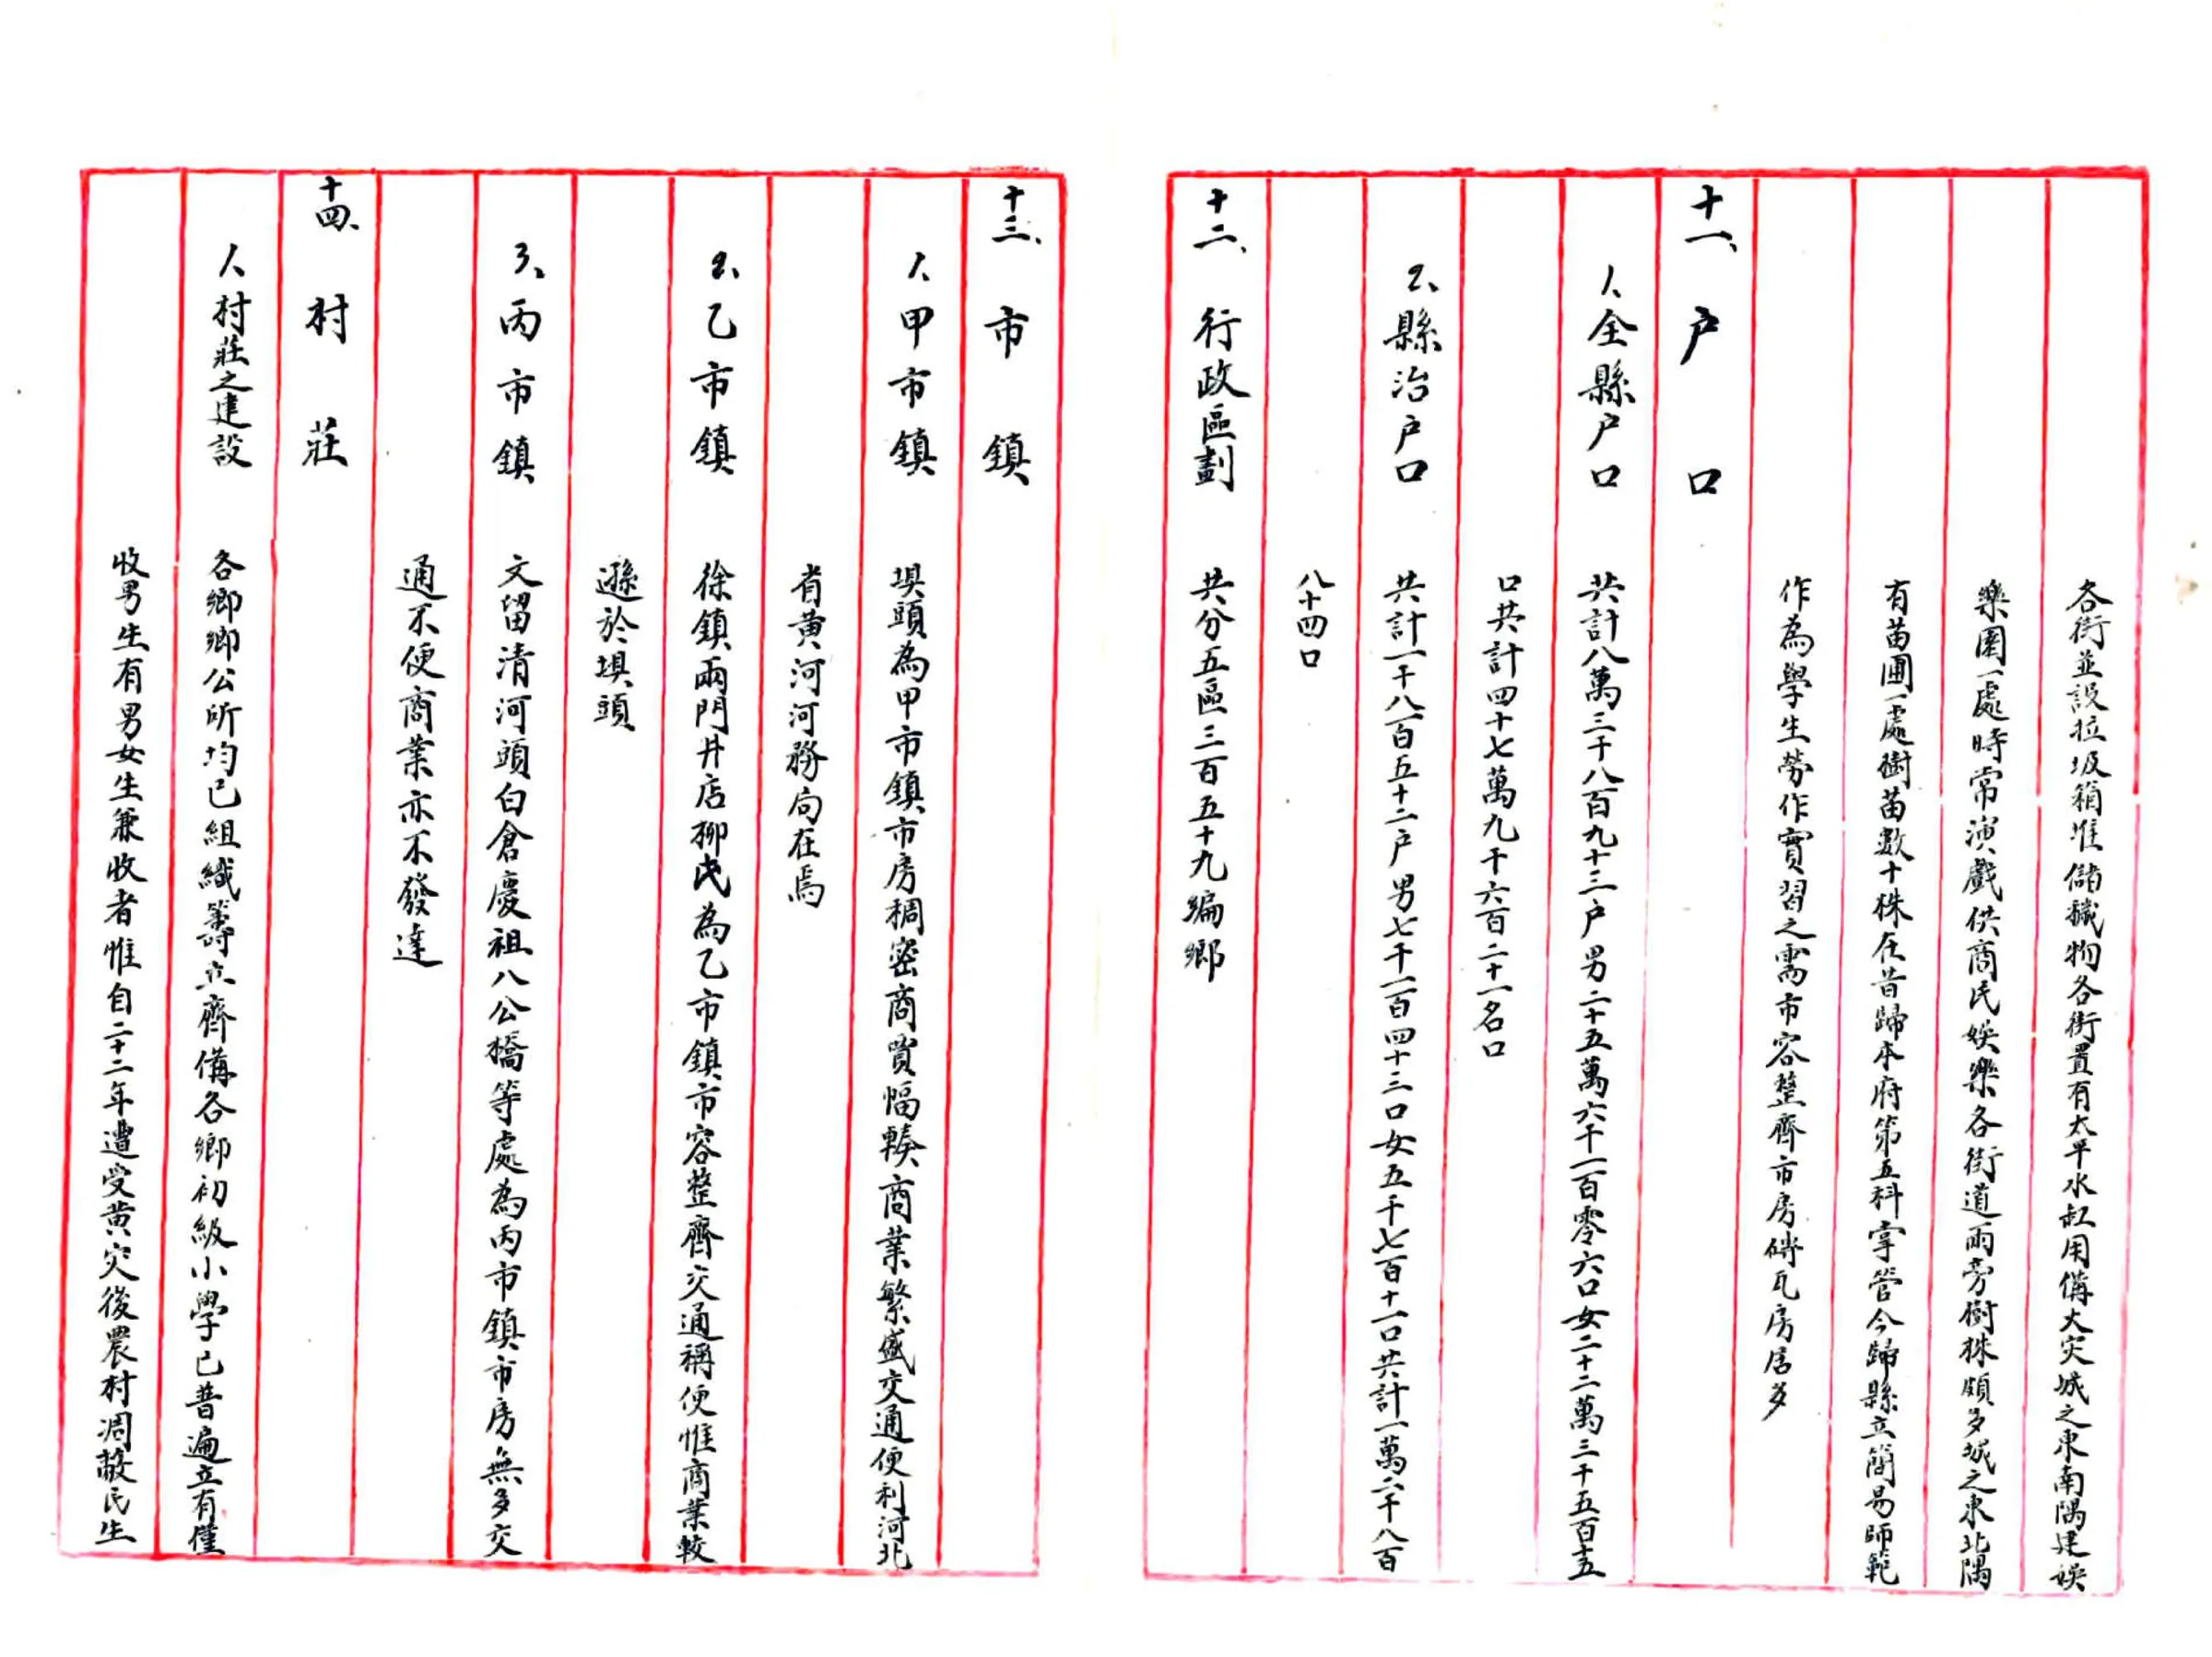 各街並設垃圾箱堆儲穢物各街置有太平水缸用備火災城之東南隅建娛
樂園一處時常演戲供商民娛樂各街道兩旁樹株頗多城之東北隅
有苗圃一處樹苗數十株在昔歸本府第五科掌管今歸縣立簡易師範
作為學生勞作實習之需市容整齊市房磚瓦房居多
十一、戶口
1、全縣戶口 共計八萬三千八百九十三戶男二十五萬六千一百零六口女二十二萬三千五百十五
口共計四十七萬九千六百二十一名口
2、縣治戶口 共計一千八百五十二戶男七千一百四十三口女五千七百十一口共計一萬二千八百
八十四口
十二、行政區劃 共分五區三百五十九編鄉
十三、市鎮
1、甲市鎮 垻頭為甲市鎮市房稠密商賈幅輳商業繁盛交通便利河北
省黃河河務局在焉
2、乙市鎮 徐鎮兩門井店柳屯為乙市鎮市容整齊交通稱便惟商業較
遜於垻頭
3、丙市鎮 文留清河頭白倉慶祖八公橋等處為丙市鎮市房無多交
通不便商業亦不發達
十四、村莊
1、村莊之建設 各鄉鄉公所均已組織籌立齊備各鄉初級小學已普遍立有僅
收男生有男女生兼收者惟自二十二年遭受黃災後農村凋敝民生